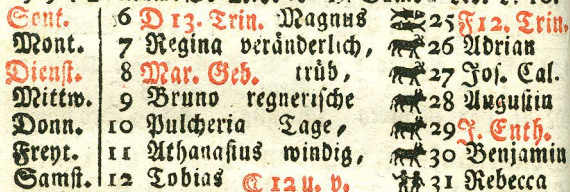 Sont. 6 D 13. Trin. Magnus 25 F12. Trin.
Mont. 7 Regina veränderlich, 26 Adrian
Dienst. 8 Mar. Geb. trüb, 27 Jos. Cal.
Mittw. 9 Bruno regnerische 28 Augustin
Donn. 10 Pulcheria Tage, 29 J. Enth.
Freyt. 11 Athanasius windig, 30 Benjamin
Samst. 12 Tobias 12 u. v. 31 Rebecca